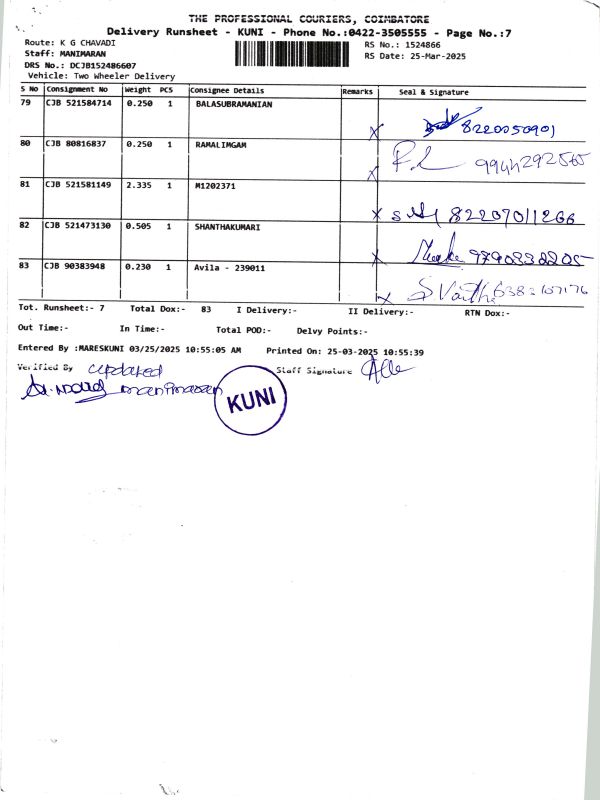 THE PROFESSIONAL COURIERS, COIMBATORE
Delivery Runsheet - KUNI - Phone No.:0422-3505555 - Page No.:7
Route: K G CHAVADI
RS No.: 1524866
Staff: MANIMARAN
RS Date: 25-Mar-2025
DRS No.: DCJB152486607
Vehicle: Two Wheeler Delivery
S No Consignment No Weight PCS Consignee Details Remarks Seal & Signature
79 CJB 521584714 0.250 1 BALASUBRAMANIAN
x 8220050901
80 CJB 80816837 0.250 1 RAMALIMGAM
x 9944292565
81 CJB 521581149 2.335 1 M1202371
x 82207011266
82 CJB 521473130 0.505 1 SHANTHAKUMARI
x
83 CJB 90383948 0.230 1 Avila - 239011
x
Tot. Runsheet:- 7 Total Dox:- 83 I Delivery:- II Delivery:- RTN Dox:-
Out Time:- In Time:- Total POD:- Delvy Points:-
Entered By :MARESKUNI 03/25/2025 10:55:05 AM Printed On: 25-03-2025 10:55:39
Verified By updated Staff Signature
manimaran
KUNI